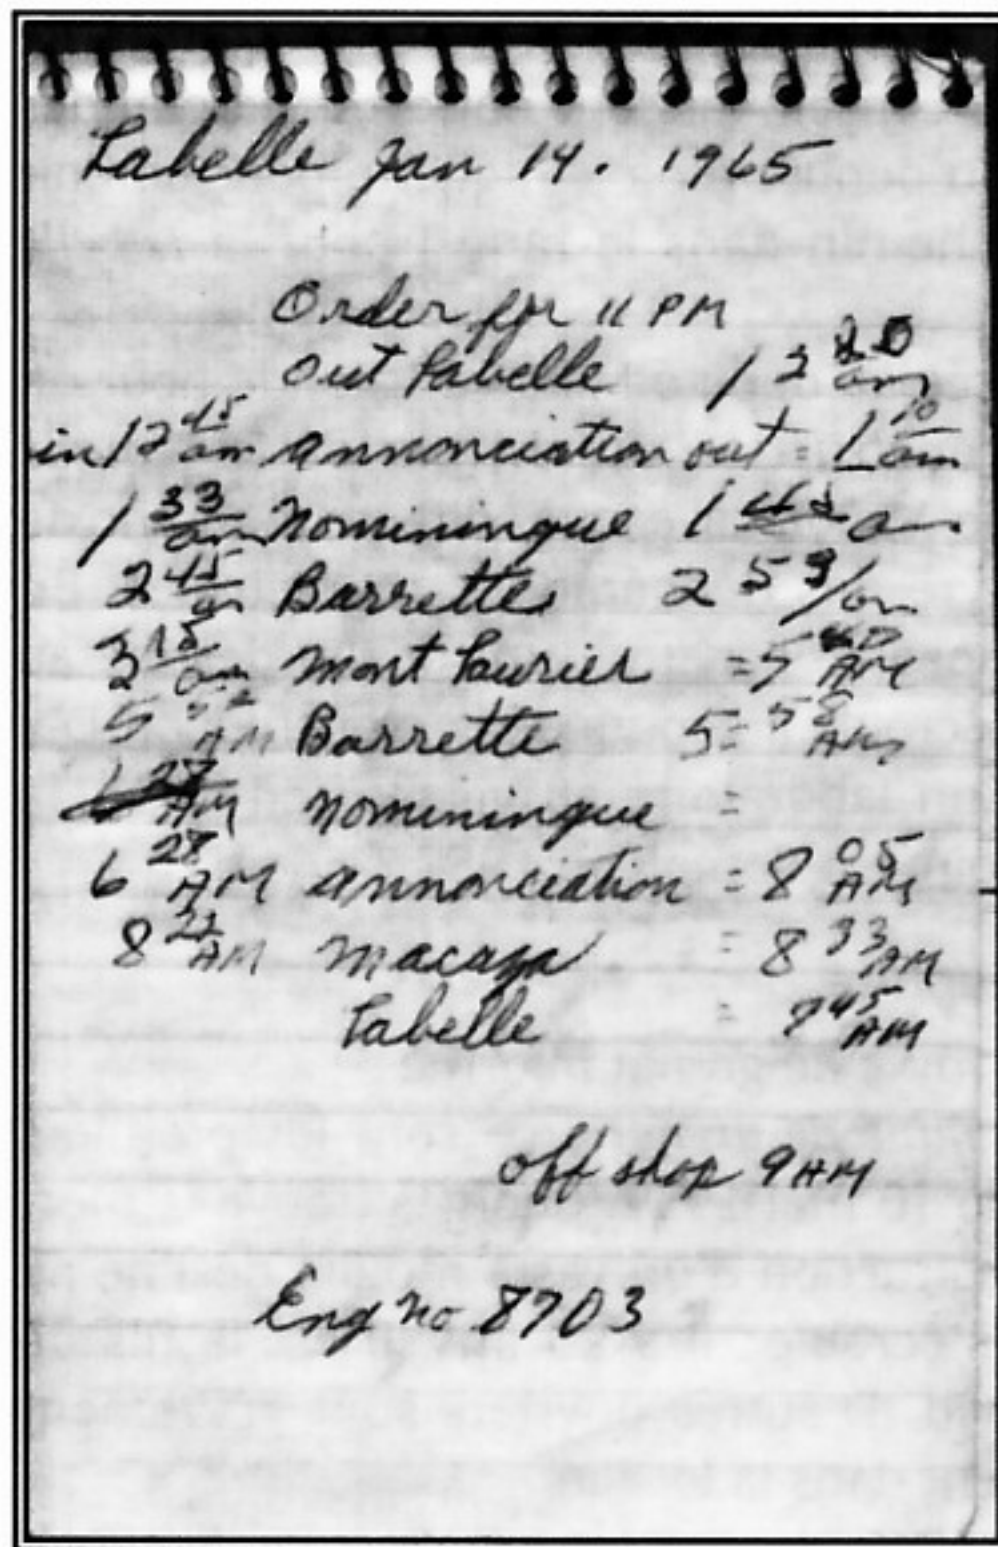 Labelle Jan 14. 1965
Order for 11 PM
Out Labelle 12 20 am
in 12 45 am annonciation out = 1 10 am
1 33 am Nominingue 1 a
2 45 am Barrette 2 59/am
3 15 am Mont Laurier = 5 AM
5 52 AM Barrette 5 = 58 AM
6 27 AM Nominingue =
6 27 AM annonciation = 8 05 AM
8 22 AM Macaza = 8 33 AM
Labelle = 45 AM
off shop 9 AM
Eng no 8703